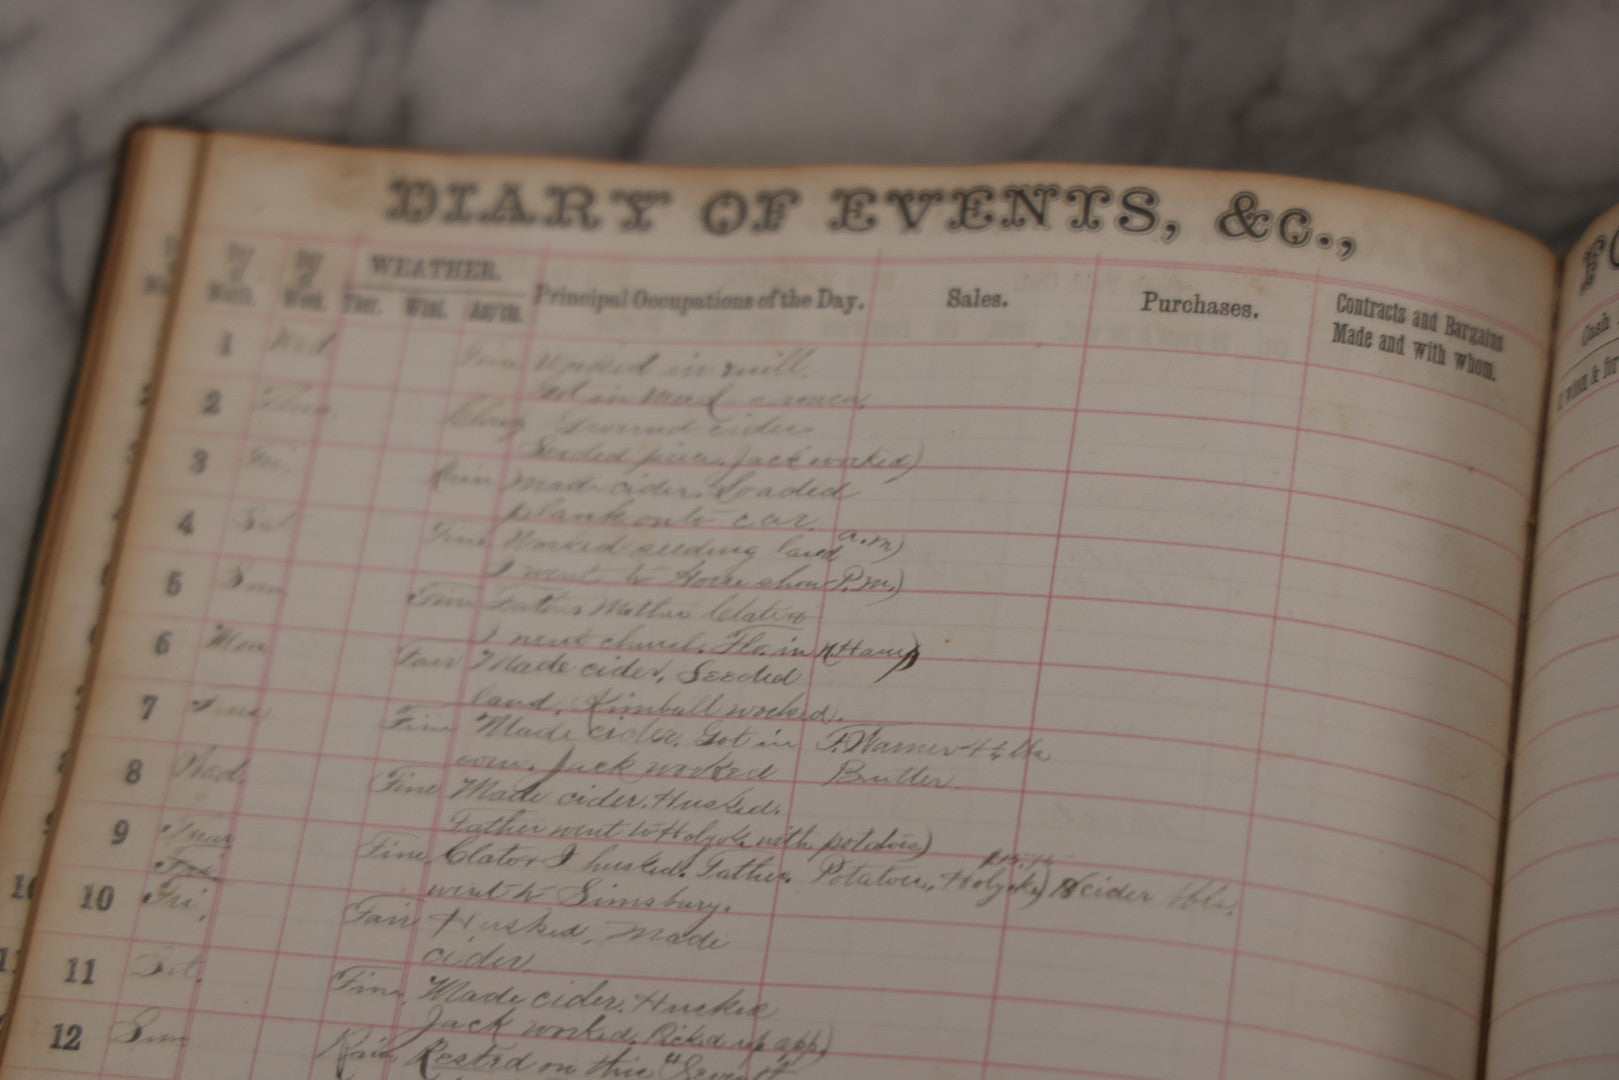 DIARY OF EVENTS, &c.,
Day of Month. Day of Week. WEATHER. Ther. Wind. Principal Occupations of the Day. Sales. Purchases. Contracts and Bargains Made and with whom. Cash
1 Wed Fine Worked in mill.
Got in
2 Thur. Cloudy Ground cider.
Seeded piece. Jack worked)
3 Fri. Rain Made cider. Loaded
plank onto car.
4 Sat Fine Worked seeding land a.m)
I went to Horse show P.m.)
5 Sun Fine Father Mother Clato &
I went church. Flo. in
6 Mon Fair Made cider. Seeded
land. Kimball worked.
7 Tues Fine Made cider. Got in F. Warner
Jack worked Butter.
8 Wed. Fine Made cider. Husked.
Father went to Holyoke with potatoes)
9 Thur Fine Clato & I husked. Father Potatoes, Holyoke) cider bbls.
went to Simsbury.
10 Fri. Fair Husked. Made
cider.
11 Sat. Fine. Made cider. Husked
Jack worked. Picked up app)
12 Sun Rain Rested on this